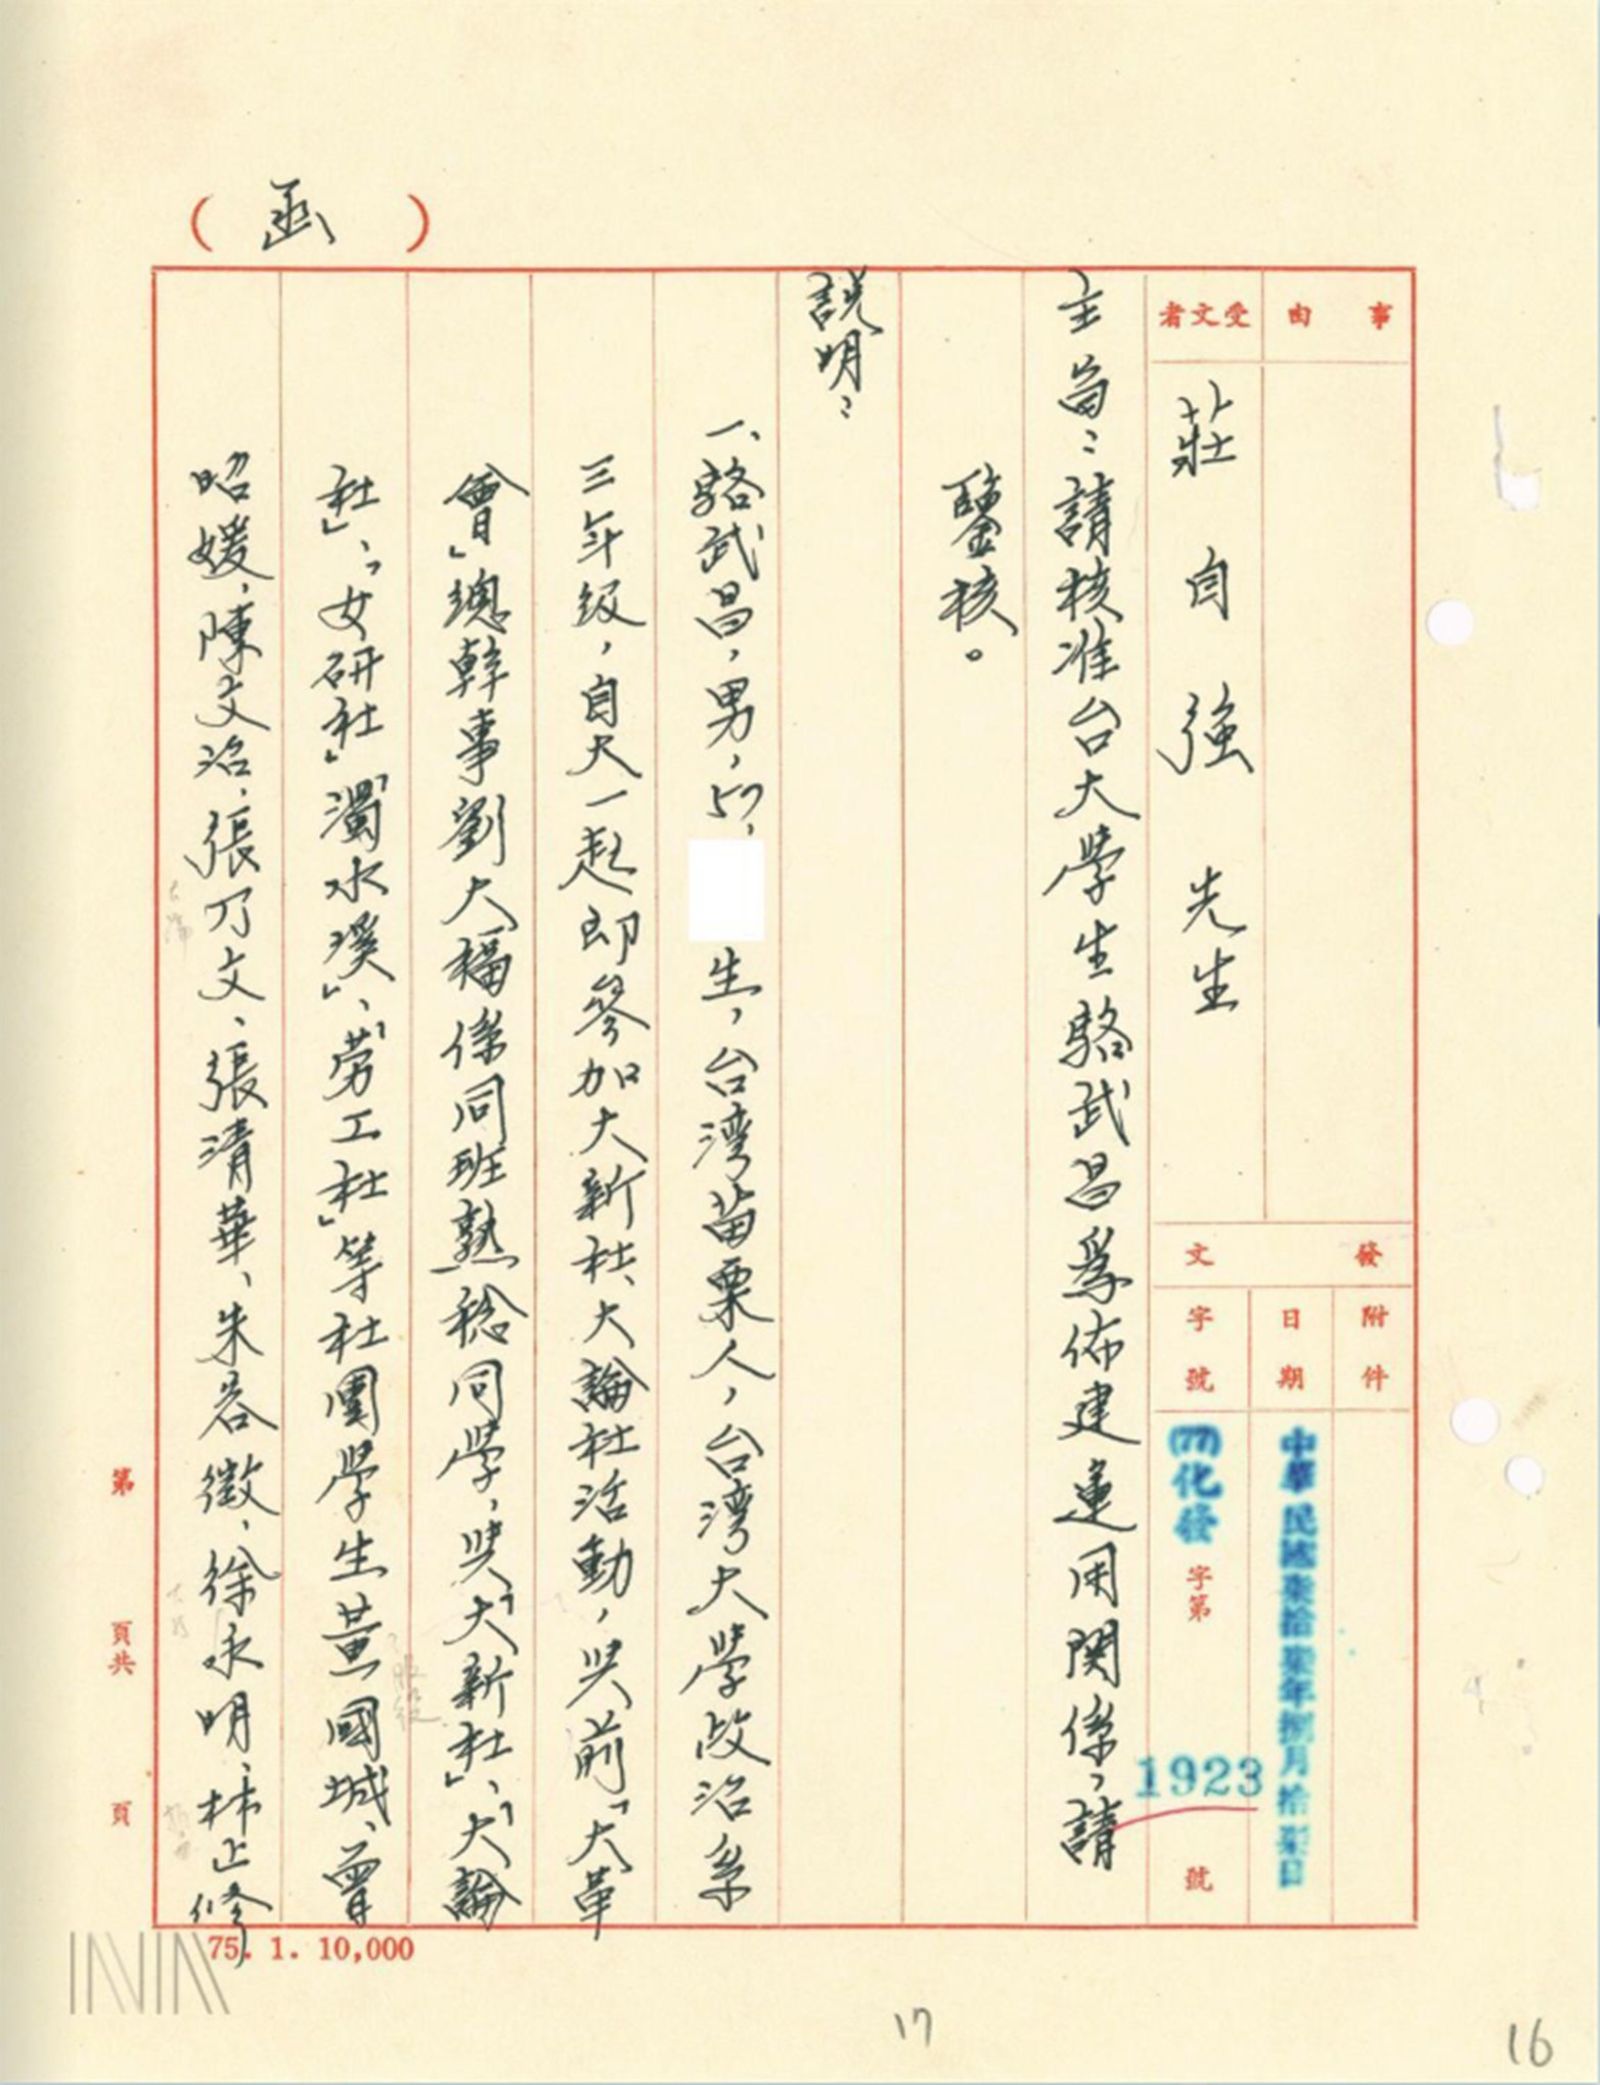 （函）
事由
受文者
莊自強先生
發文
附件
日期
中華民國柒拾柒年捌月拾
日
字號
(77)化發字第1923號
主旨：請核准台大學生駱武昌為佈建運用関係，請
鑒核。
說明：
一、駱武昌，男，57，生，台湾苗栗人，台湾大學政治系
三年级，自大一起即參加大新社、大論社活動，與前「大革
會」總幹事劉大福係同班熟稔同學，與「大新社」、「大論
社」、「女研社」「濁水溪」、「劳工社」等社團學生黃國城、曾
昭媛、陳文治、張乃文、張清華、朱容徵、徐永明、林正修
第 頁共 頁
75. 1. 10,000
17
16